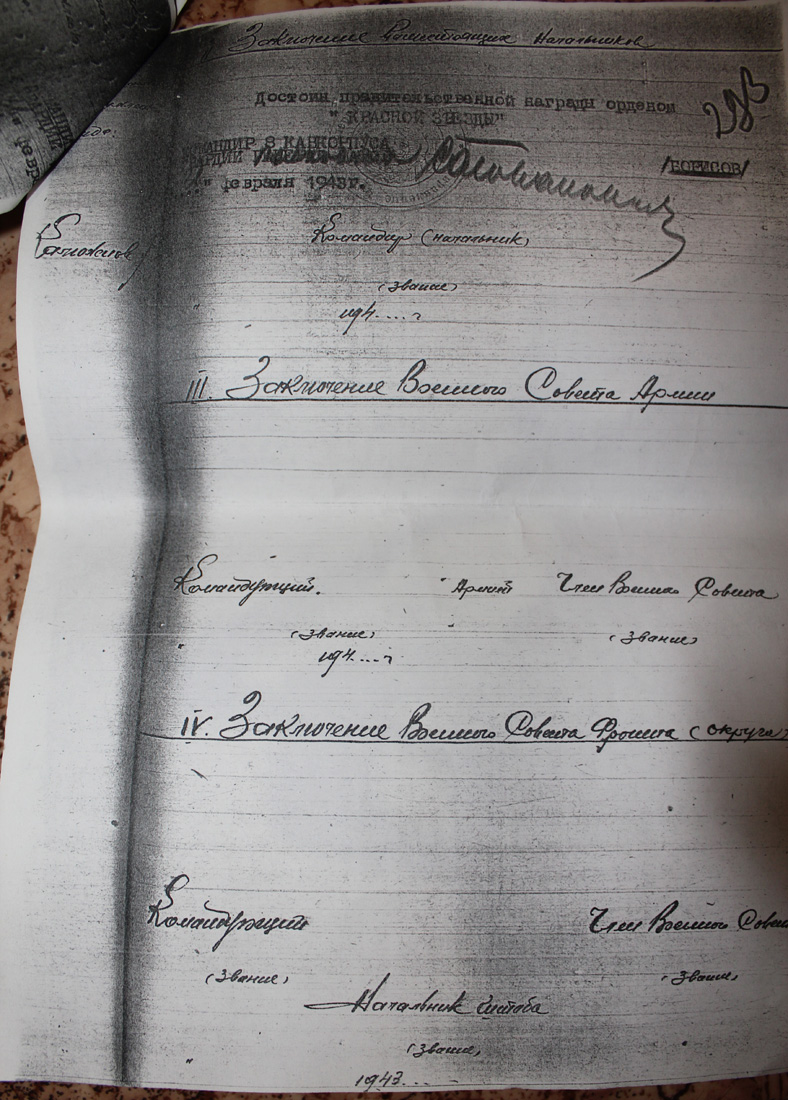 Заключение Вышестоящих Начальников
Достоин правительственной награды орденом
"КРАСНОЙ ЗВЕЗДЫ"
283
КОМАНДИР 8 КАВКОРПУСА
ГВАРДИИ
/БОРИСОВ/
" февраля 1943г.
Командир (начальник)
(звание)
"
194....г
III. Заключение Военного Совета Армии
Командующий. " Армией Член Военного Совета
(звание) (звание)
" 194....г
IV. Заключение Военного Совета Фронта (округа)
Командующий Член Военного Сове
(звание) (звание)
Начальник Штаба
(звание)
"
1943...